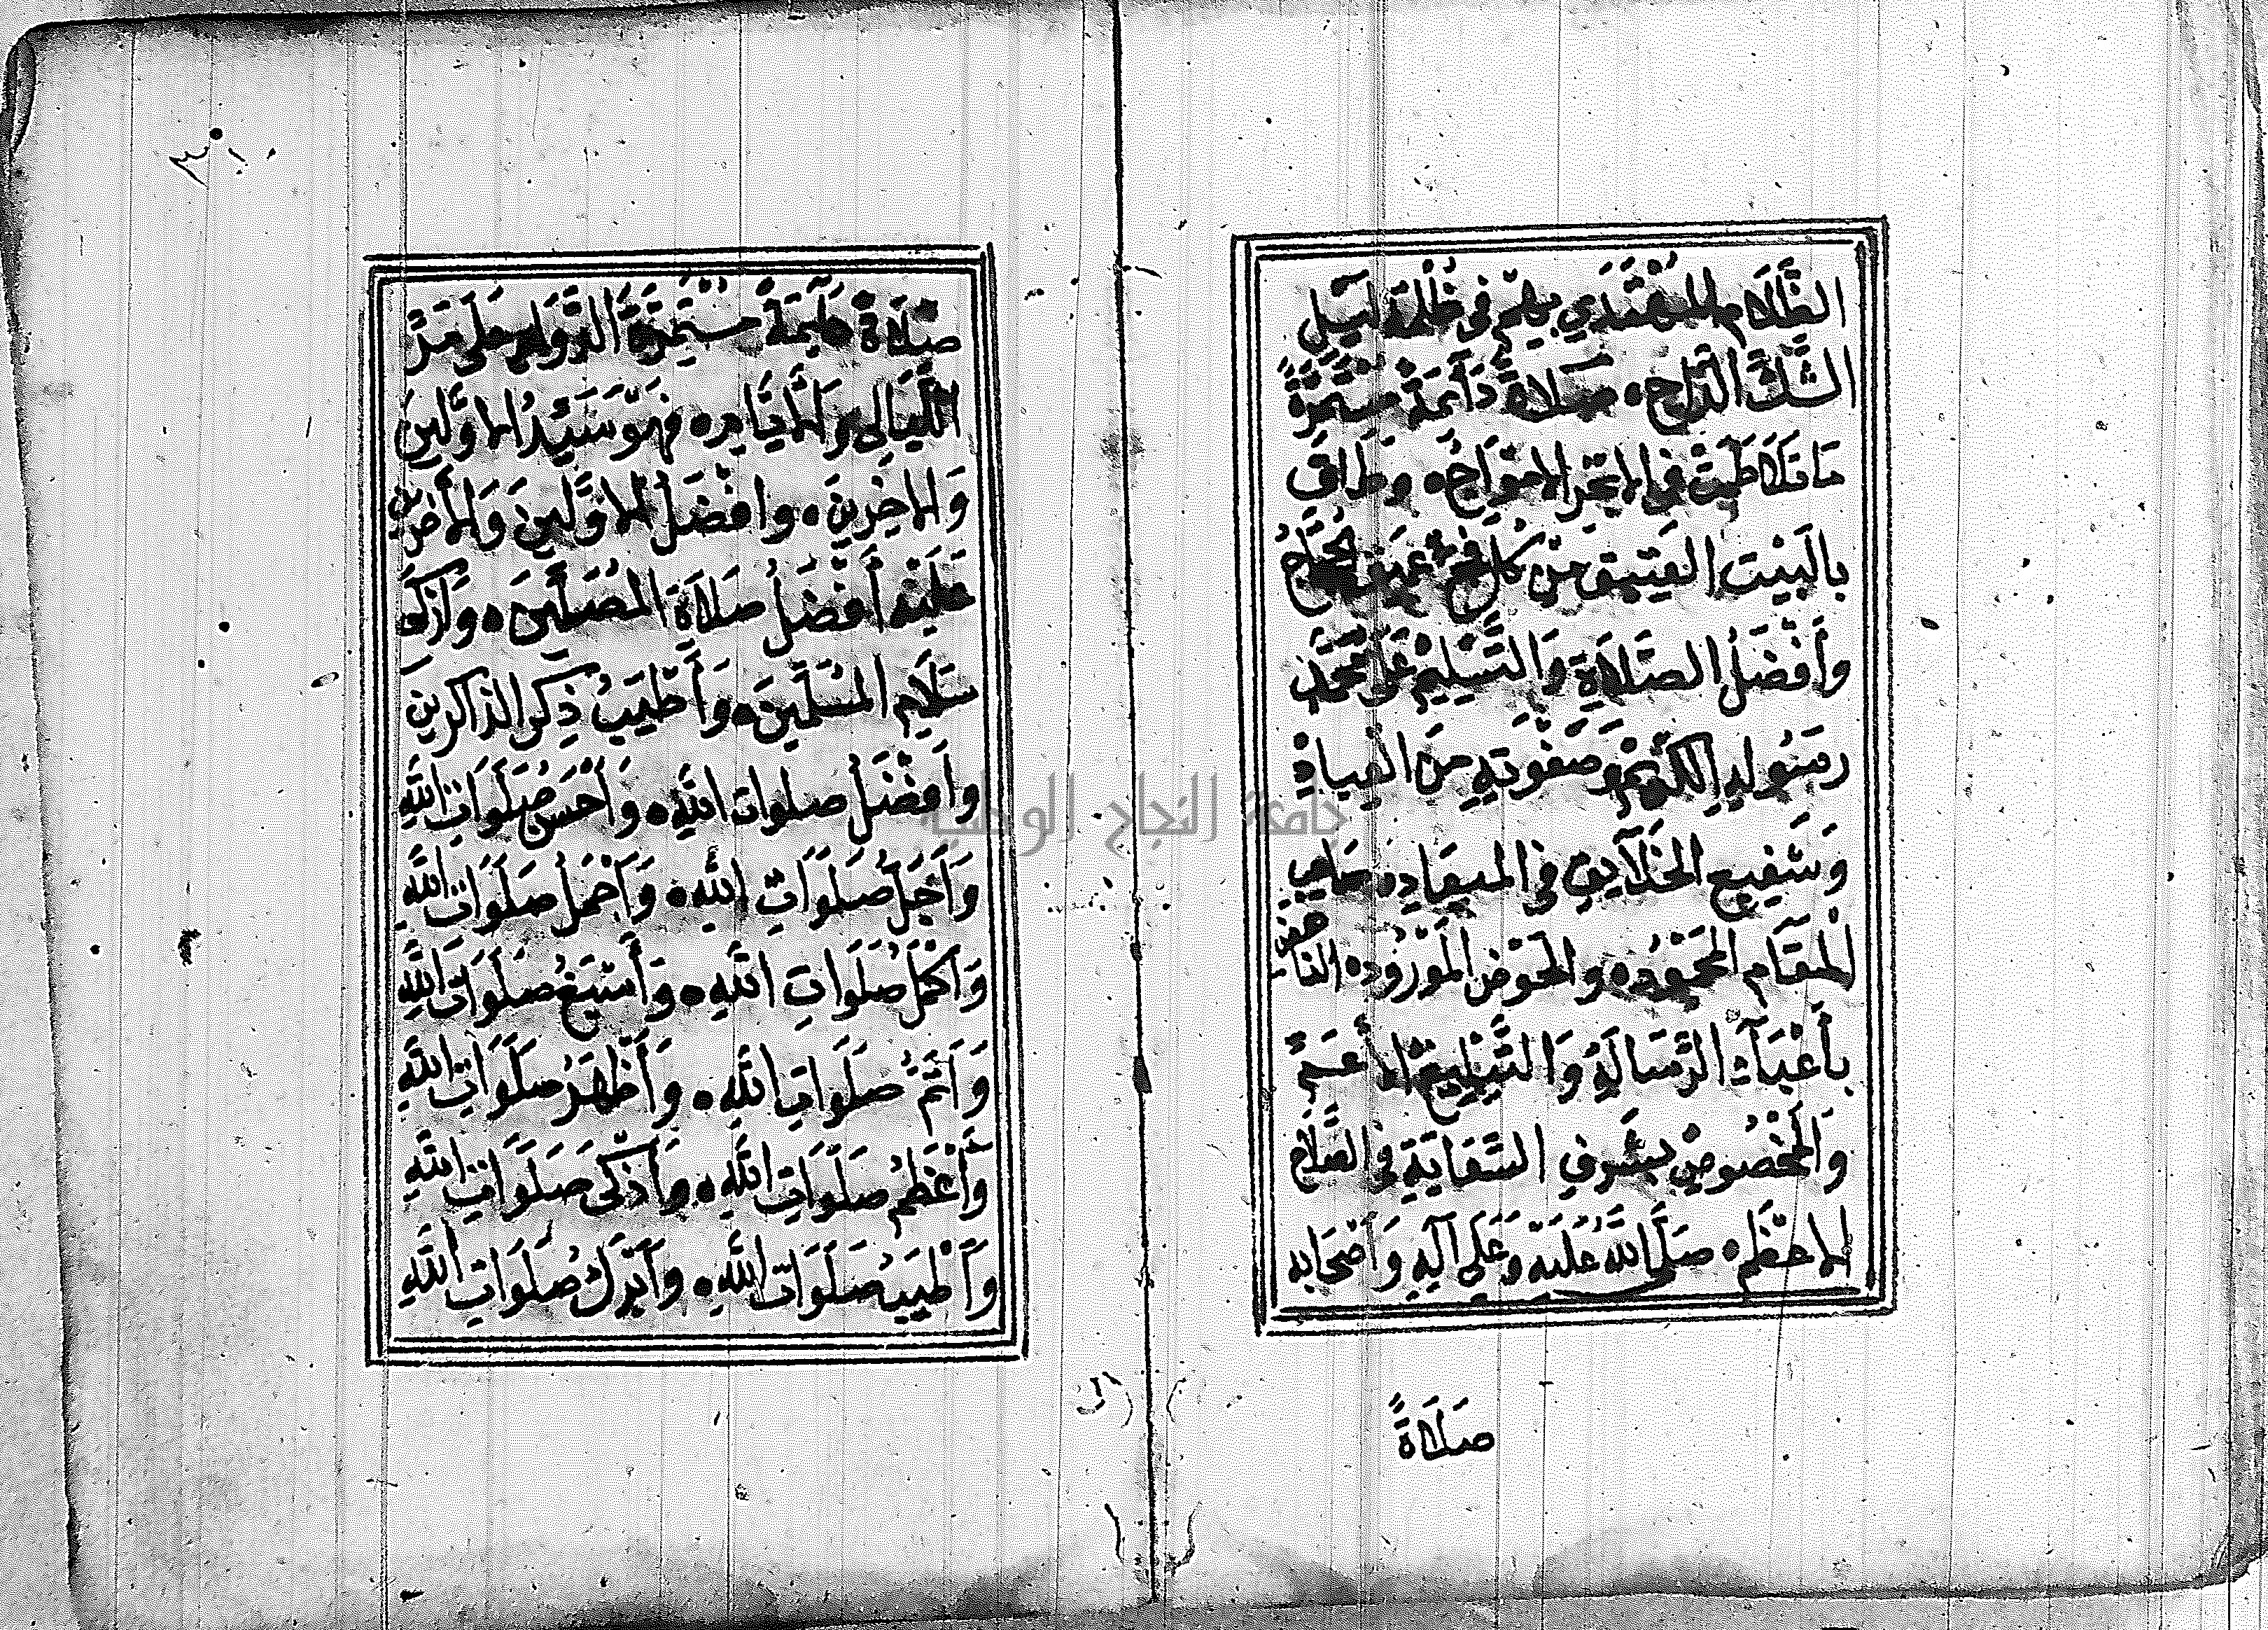 الظَّلَامِ المُهْتَدَي بِهِم في ظُلْمَةِ لَيْلِ
الشَّكِّ الدَّاج ٥ صَلَاةً دَآئمَةً مُسْتَمِرَّةً
مَا تَلَاطَمَتْ في الابْحُرِ الامْوَاجُ ٥ وطَافَ
بالبَيْتِ العَتِيقِ مِنْ كُلِّ فَجٍّ عَمِيقٍ الحُجَّاجُ
وأَفْضَلُ الصَّلَاةِ وَالتَّسْلِيْمِ عَلَى مُحَمَّدٍ
رسُولِهِ الكَرِيْمِ وَصَفْوَتِهِ مِنَ العِبادِ
وَشَفِيع الخَلَآيِقِ في الميعَادِ ٥ صَاحِبِ
المَقَامِ المَحْمُوْدِ ٥ والحَوْضِ المَوْرُوْدِ ٥ النَّاهِضِ
بأَعْبَآءِ الرِّسَالَةِ وَالتَّبْلِيْغِ الأَعَمِّ
وَالمَخْصُوصِ بِشَرَفِ السِّعَايَةِ في الصَّلَاحِ
الاعْظَمِ ٥ صَلَّى اللَّهُ عَلَيْهِ وَعَلَى آلِهِ وَاَصْحَابِهِ
صَلَاةً
صَلَاةً دَآيِمَةً مُسْتَمِرَّةَ الدَّوَامِ عَلَى مَرِّ
اللَّيَالِي وَالأَيَّامِ ٥ فَهُوَ سَيِّدُ الاوَّلينَ
وَالاخِرِينَ ٥ وافْضَلُ الاوَّلِينَ وَالأَخَرِينَ
عَلَيْهِ أَفْضَلُ صَلَاةِ المُصَلِّينَ ٥ وَأَزْكَى
سَلَامِ المُسَلِّمِينَ ٥ وَأَطْيَبُ ذِكرِ الذاكرِينَ
وأَفْضَلُ صلوات اللَّهِ ٥ وَأَحْسَنُ صَلَوَاتِ اللَّهِ
وَأَجَلُّ صَلَوَاتِ اللهِ ٥ وَأَجْمَلُ صَلَوَاتِ اللَّهِ
وَاَكْمَلُ صَلَوَاتِ اللَّهِ ٥ وَأَسْبَغُ صَلَوَاتِ اللَّهِ
وَاَتَمُّ صَلَوَاتِ اللَّهِ ٥ وَأَظْهَرُ صَلَوَاتِ اللَّهِ
وَأَعْظَمُ صَلَوَاتِ اللَّهِ ٥ وَأَذْكَى صَلَوَاتِ اللَّهِ
وَأَطْيَبُ صَلَوَاتِ اللَّهِ ٥ وَأَبْرَكُ صَلَوَاتِ اللَّهِ
جامعة النجاح الوطنية